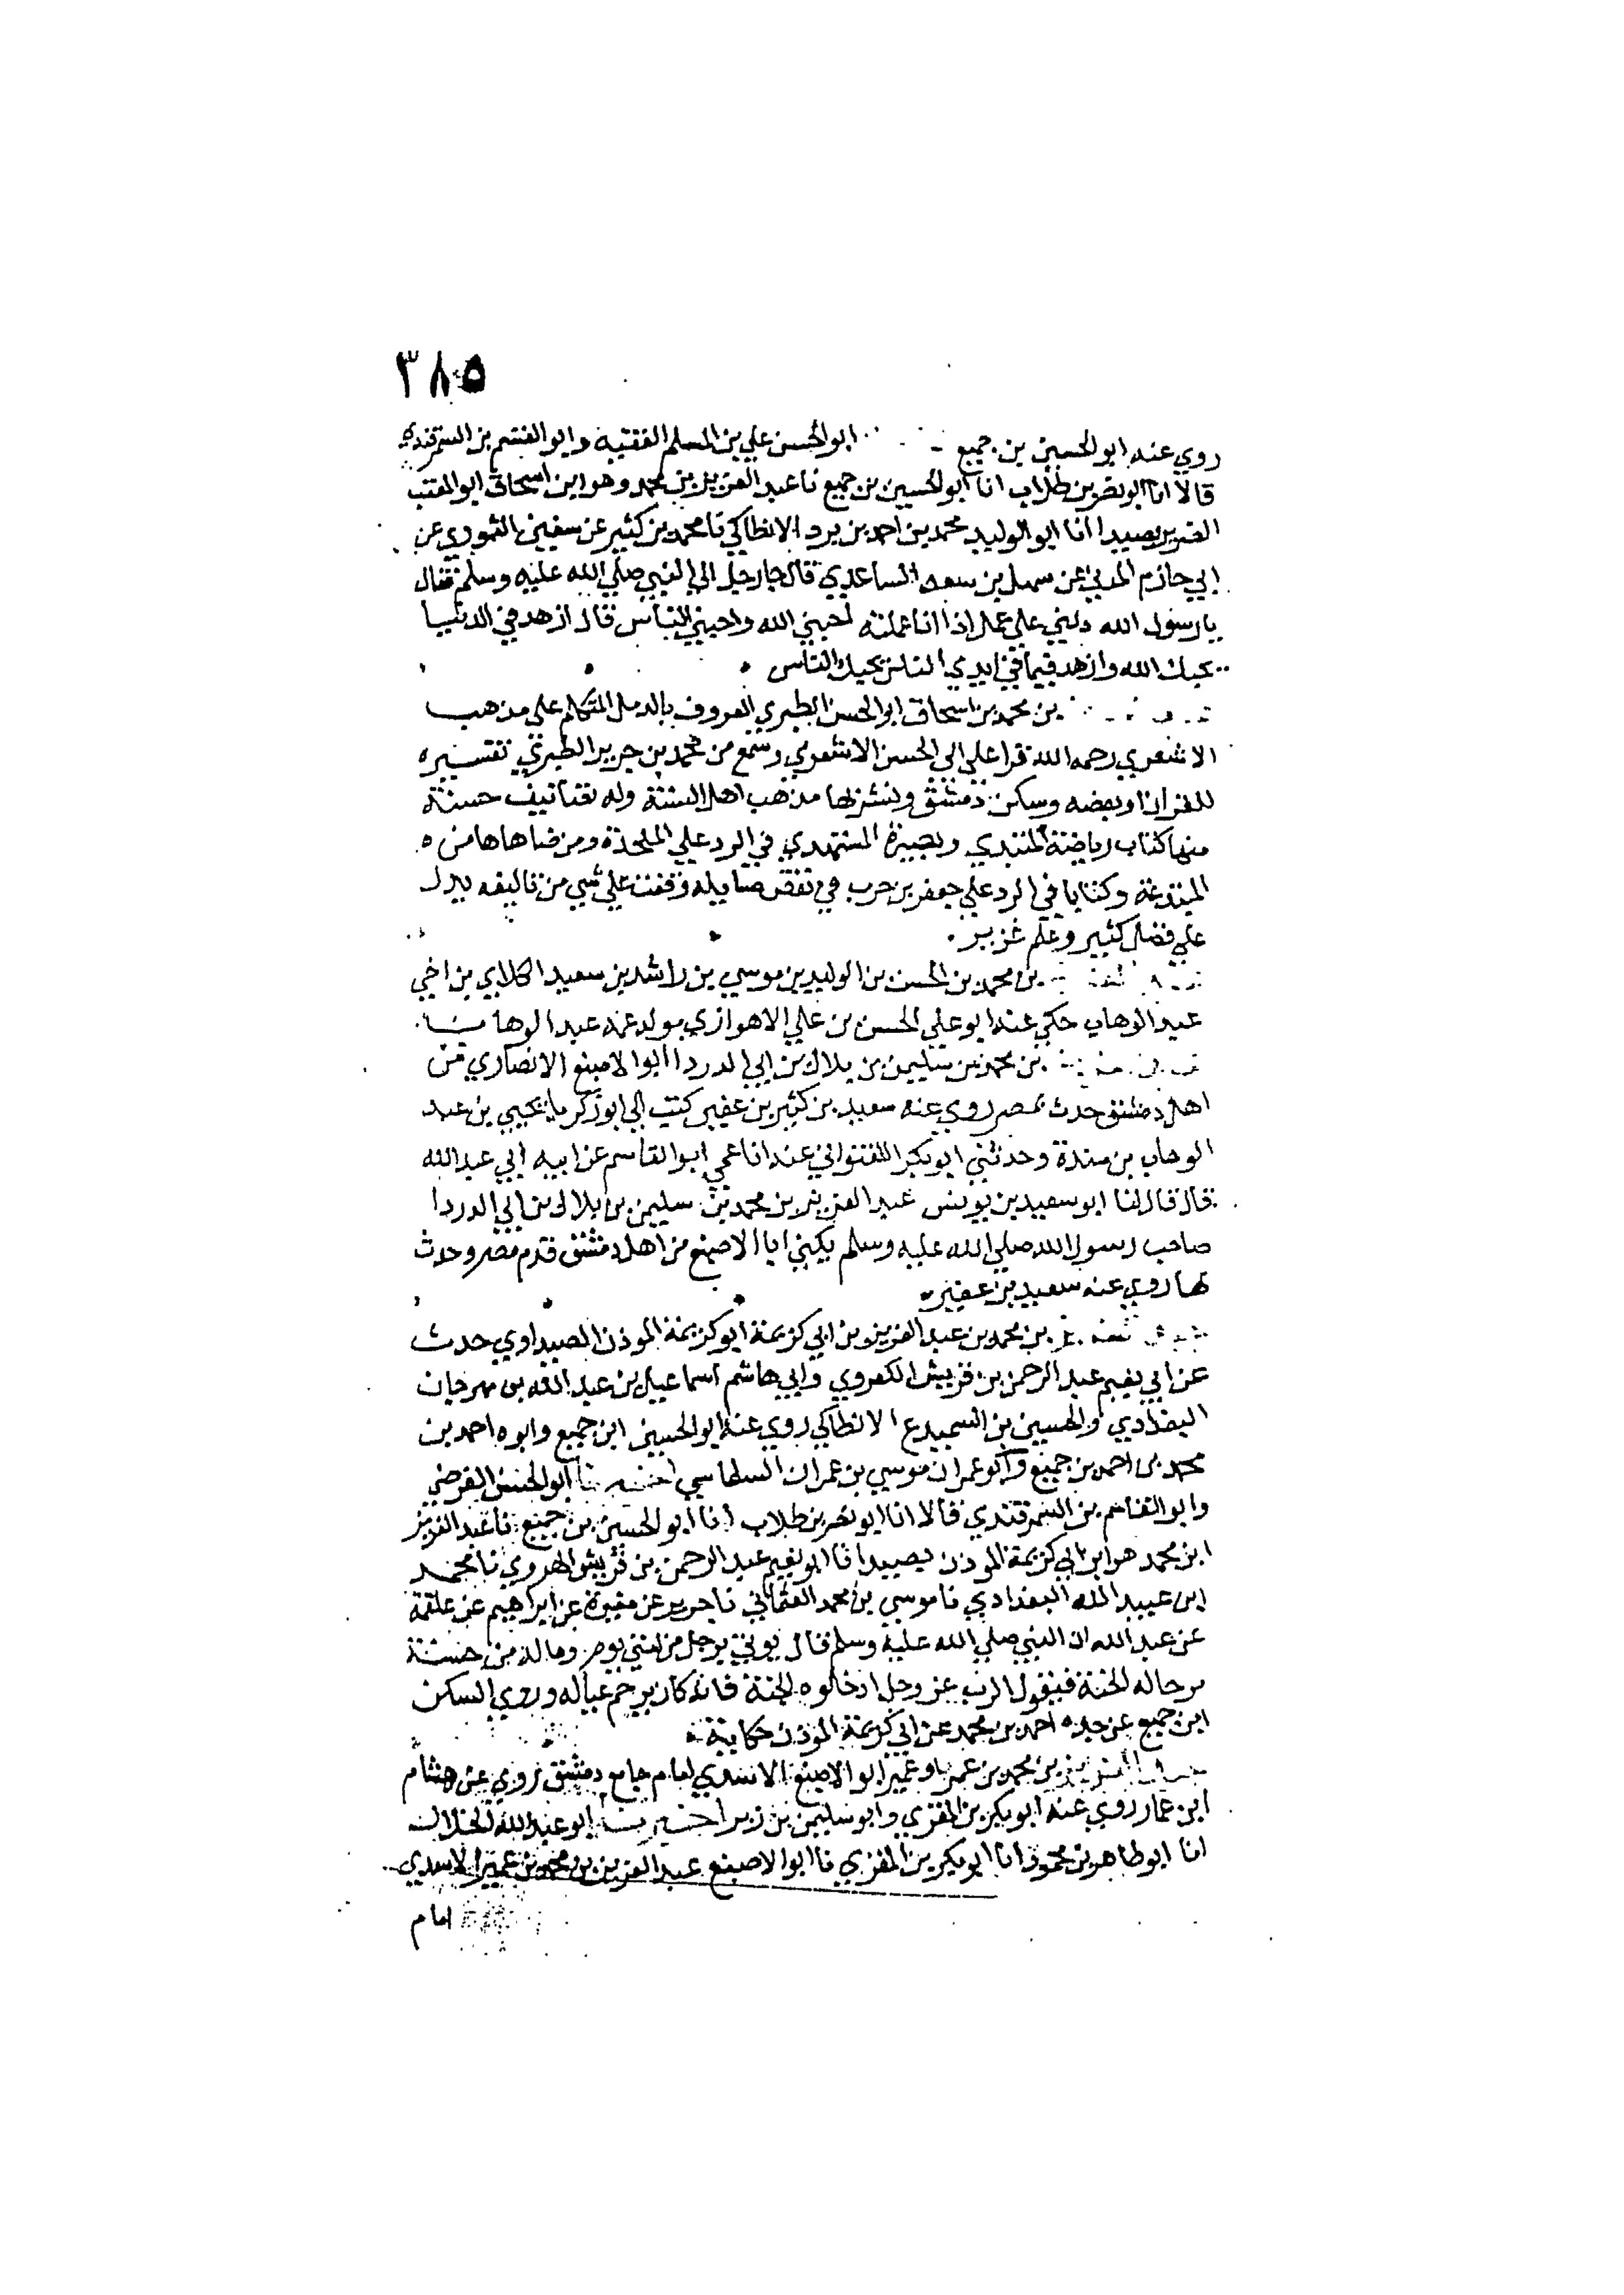 ٣٨٥
روي عنه ابو الحسين بن جميع ابو الحسن علي بن المسلم الفقيه وابو القسم بن السمرقندي
قالا انا ابو نصر بن طلاب انا ابو الحسين بن جميع نا عبد العزيز بن محمد وهو ابن اسحاق ابو
الضرير بصيدا انا ابو الوليد محمد بن احمد بن برد الانطاكي نا محمد بن كثير عن سفين الثوري عن
ابي حازم المدني عن سهل بن سعد الساعدي قال جا رجل الي النبي صلي الله عليه وسلم فقال
يا رسول الله دلني علي عمل اذا انا عملته احبني الله واحبني الناس قال ازهد في الدنيا
يحبك الله وازهد فيما في ايدي الناس يحبك الناس
بن محمد بن اسحاق ابو الحسن الطبري المعروف بالدمل المتكلم علي مذهب
الاشعري رحمه الله قرا علي ابي الحسن الاشعري وسمع من محمد بن جرير الطبري تفسيره
للقران او بعضه وسكن دمشق ونشر بها مذهب اهل السنة وله تصانيف حسنة
منها كتاب رياضة المبتدي وبصيرة المستهدي في الرد علي الملحدة ومن ضاهاها من
المبتدعة وكتابا في الرد علي جعفر بن حرب في نقض مسايله وقفت علي شي من تاليفه يدل
علي فضل كثير وعلم غزير
بن محمد بن الحسن بن الوليد بن موسي بن راشد بن سعيد الكلابي بن اخي
عبد الوهاب حكي عنه ابو علي الحسن بن علي الاهوازي مولد عمه عبد الوهاب
بن محمد بن سليمن بن بلال بن ابي الدردا ابو الاصبغ الانصاري من
اهل دمشق حدث بمصر روي عنه سعيد بن كثير بن عفير كتب الي ابو زكريا يحيي بن عبد
الوهاب بن مندة وحدثني ابو بكر اللفتواني عنه انا عمي ابو القاسم عن ابيه ابي عبد الله
قال قال لنا ابو سعيد بن يونس عبد العزيز بن محمد بن سليمن بن بلال بن ابي الدردا
صاحب رسول الله صلي الله عليه وسلم يكني ابا الاصبغ من اهل دمشق قدم مصر وحدث
بها روي عنه سعيد بن عفير
بن محمد بن عبد العزيز بن ابي كريمة ابو كريمة الموذن الصيداوي حدث
عن ابي نعيم عبد الرحمن بن قريش الهروي وابي هاشم اسماعيل بن عبد الله بن مهرجان
البغدادي والحسين بن السميدع الانطاكي روي عنه ابو الحسين ابن جميع وابوه احمد بن
محمد بن احمد بن جميع وابو عمران موسي بن عمران السلماسي اخبرنا ابو الحسن الفرضي
وابو القاسم بن السمرقندي قالا انا ابو نصر بن طلاب انا ابو الحسين بن جميع نا عبد العزيز
ابن محمد هو ابن ابي كريمة الموذن بصيدا نا ابو نعيم عبد الرحمن بن قريش الهروي نا محمد
ابن عبيد الله البغدادي نا موسي بن محمد العثماني نا جرير عن مغيرة عن ابراهيم عن علقمة
عن عبد الله ان النبي صلي الله عليه وسلم قال يوتي برجل من امتي يوم وما له من حسنة
ترجا له الجنة فيقول الرب عز وجل ادخلوه الجنة فانه كان يرحم عياله وروي السكن
ابن جميع عن جده احمد بن محمد عن ابي كريمة الموذن حكاية
بن محمد بن عمر او عمير ابو الاصبغ الاسدي امام جامع دمشق روي عن هشام
ابن عمار روي عنه ابو بكر بن المقري وابو سليمن بن زبر اخبرنا ابو عبد الله الخلال
انا ابو طاهر بن محمود انا ابو بكر بن المقري نا ابو الاصبغ عبد العزيز بن محمد بن عمير الاسدي
امام